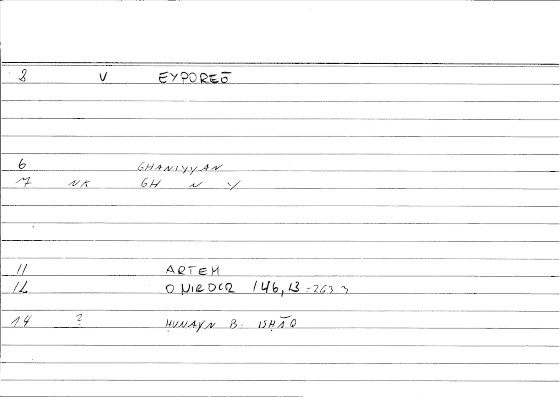 8 V EYPOREŌ
6 GHANIYYAN
7 NK GH N Y
11 ARTEM
12 ONIROCR 146,13-263
14 ? ḤUNAYN B. ISḤĀQ